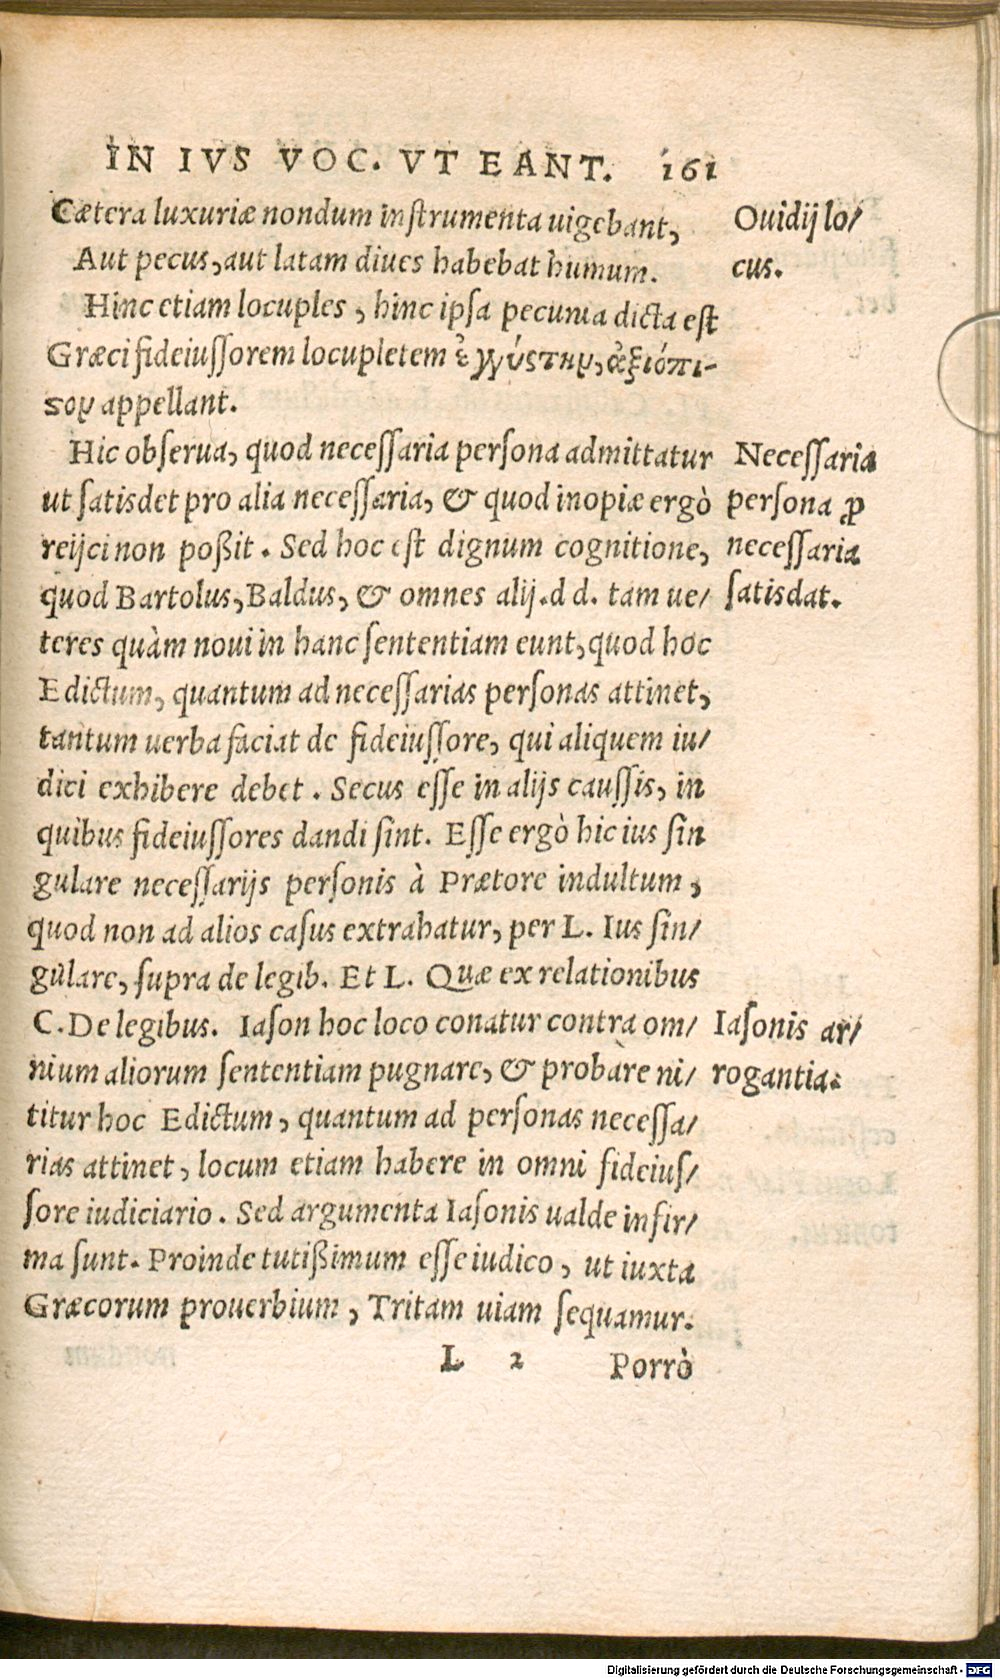 IN IVS VOC. VT EANT. 161
Cætera luxuriæ nondum instrumenta uigebant,
Aut pecus, aut latam diues habebat humum.
Ouidij lo/
cus.
Hinc etiam locuples, hinc ipsa pecunia dicta est
Græci fideiussorem locupletem ἐγγύστην, ἀξιόπι-
ςον appellant.
Hic obserua, quod necessaria persona admittatur
ut satisdet pro alia necessaria, & quod inopiæ ergò
reijci non poßit. Sed hoc est dignum cognitione,
quod Bartolus, Baldus, & omnes alij. d d. tam ue/
Necessaria
persona ꝓ
necessaria
satisdat.
teres quàm noui in hanc sententiam eunt, quod hoc
Edictum, quantum ad necessarias personas attinet,
tantum uerba faciat de fideiussore, qui aliquem iu/
dici exhibere debet. Secus esse in alijs caussis, in
quibus fideiussores dandi sint. Esse ergò hic ius sin
gulare necessarijs personis à Prætore indultum,
quod non ad alios casus extrahatur, per L. Ius sin/
gulare, supra de legib. Et L. Quæ ex relationibus
C. De legibus. Iason hoc loco conatur contra om/
nium aliorum sententiam pugnare, & probare ni/
Iasonis ar/
rogantia.
titur hoc Edictum, quantum ad personas necessa/
rias attinet, locum etiam habere in omni fideius/
sore iudiciario. Sed argumenta Iasonis ualde infir/
ma sunt. Proinde tutißimum esse iudico, ut iuxta
Græcorum prouerbium, Tritam uiam sequamur.
L 2 Porrò
Digitalisierung gefördert durch die Deutsche Forschungsgemeinschaft - DFG